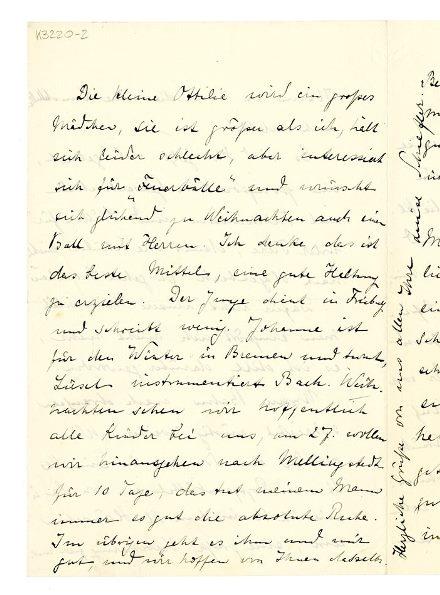 K3220-2
Die kleine Ottilie wird ein großes
Mädchen, sie ist größer als ich, hält
sich leider schlecht, aber interessirt
sich für „Feuerbälle“ und wünscht
sich glühend zu Weihnachten auch ein
Ball mit Herren. Ich denke das ist
das beste Mittel, eine gute Haltung
zu erzielen. Der Junge dient in Freiburg
und schreibt wenig. Johanne ist
für den Winter in Bremen und turnt,
Liesel instrumentiert Bach. Weih-
nachten sehen wir hoffentlich
alle Kinder bei uns, am 27. wollen
wir hinausgehen nach Wellingstedt
für 10 Tage, das tut meinem Mann
immer so gut die absolute Ruhe.
Im übrigen geht es ihm und mir
gut, und wir hoffen von Ihnen dasselbe.
Herzliche Grüße von uns allen Ihre